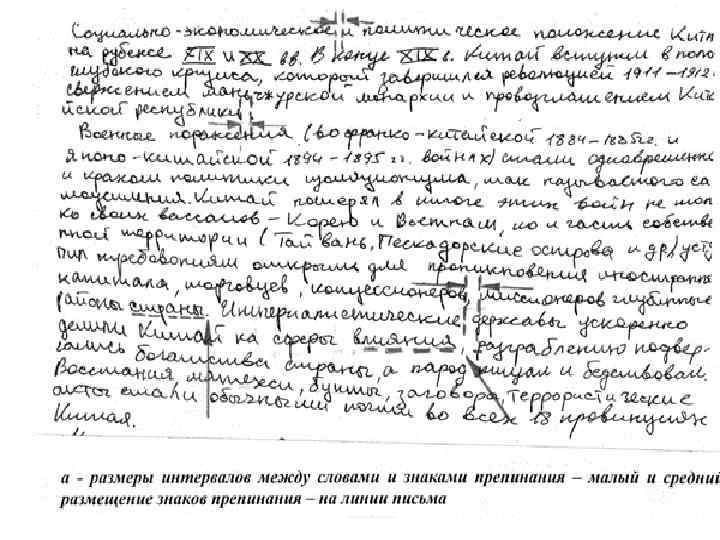 Социально-экономическое и политическое положение Кита
на рубеже XIX и XX вв. В конце XIX в. Китай вступил в поло
глубокого кризиса, который завершился революцией 1911–1912.
свержением маньчжурской монархии и провозглашением Кит
йской республики.
Военные поражения (во франко-китайской 1884–1885гг. и
японо-китайской 1894–1895 гг. войнах) стали одновременно
и крахом политики изоляционизма, так называемого са
моусиления. Китай потерял в итоге этих войн не тол
ко своих вассалов – Корею и Вьетнам, но и часть собстве
нной территории (Тайвань, Пескадорские острова и др.) уст
пил требованиям открыть для проникновения иностранно
капитала, торговцев, концессионеров, миссионеров глубинные
районы страны. Империалистические державы ускоренно
делили Китай на сферы влияния, разграблению подвер-
гались богатства страны, а народ нищал и бедствовал.
Восстания мятежи, бунты, заговора, террористические
акты стали обычными почти во всех 18 провинциях
Китая.
а - размеры интервалов между словами и знаками препинания – малый и средний
размещение знаков препинания – на линии письма